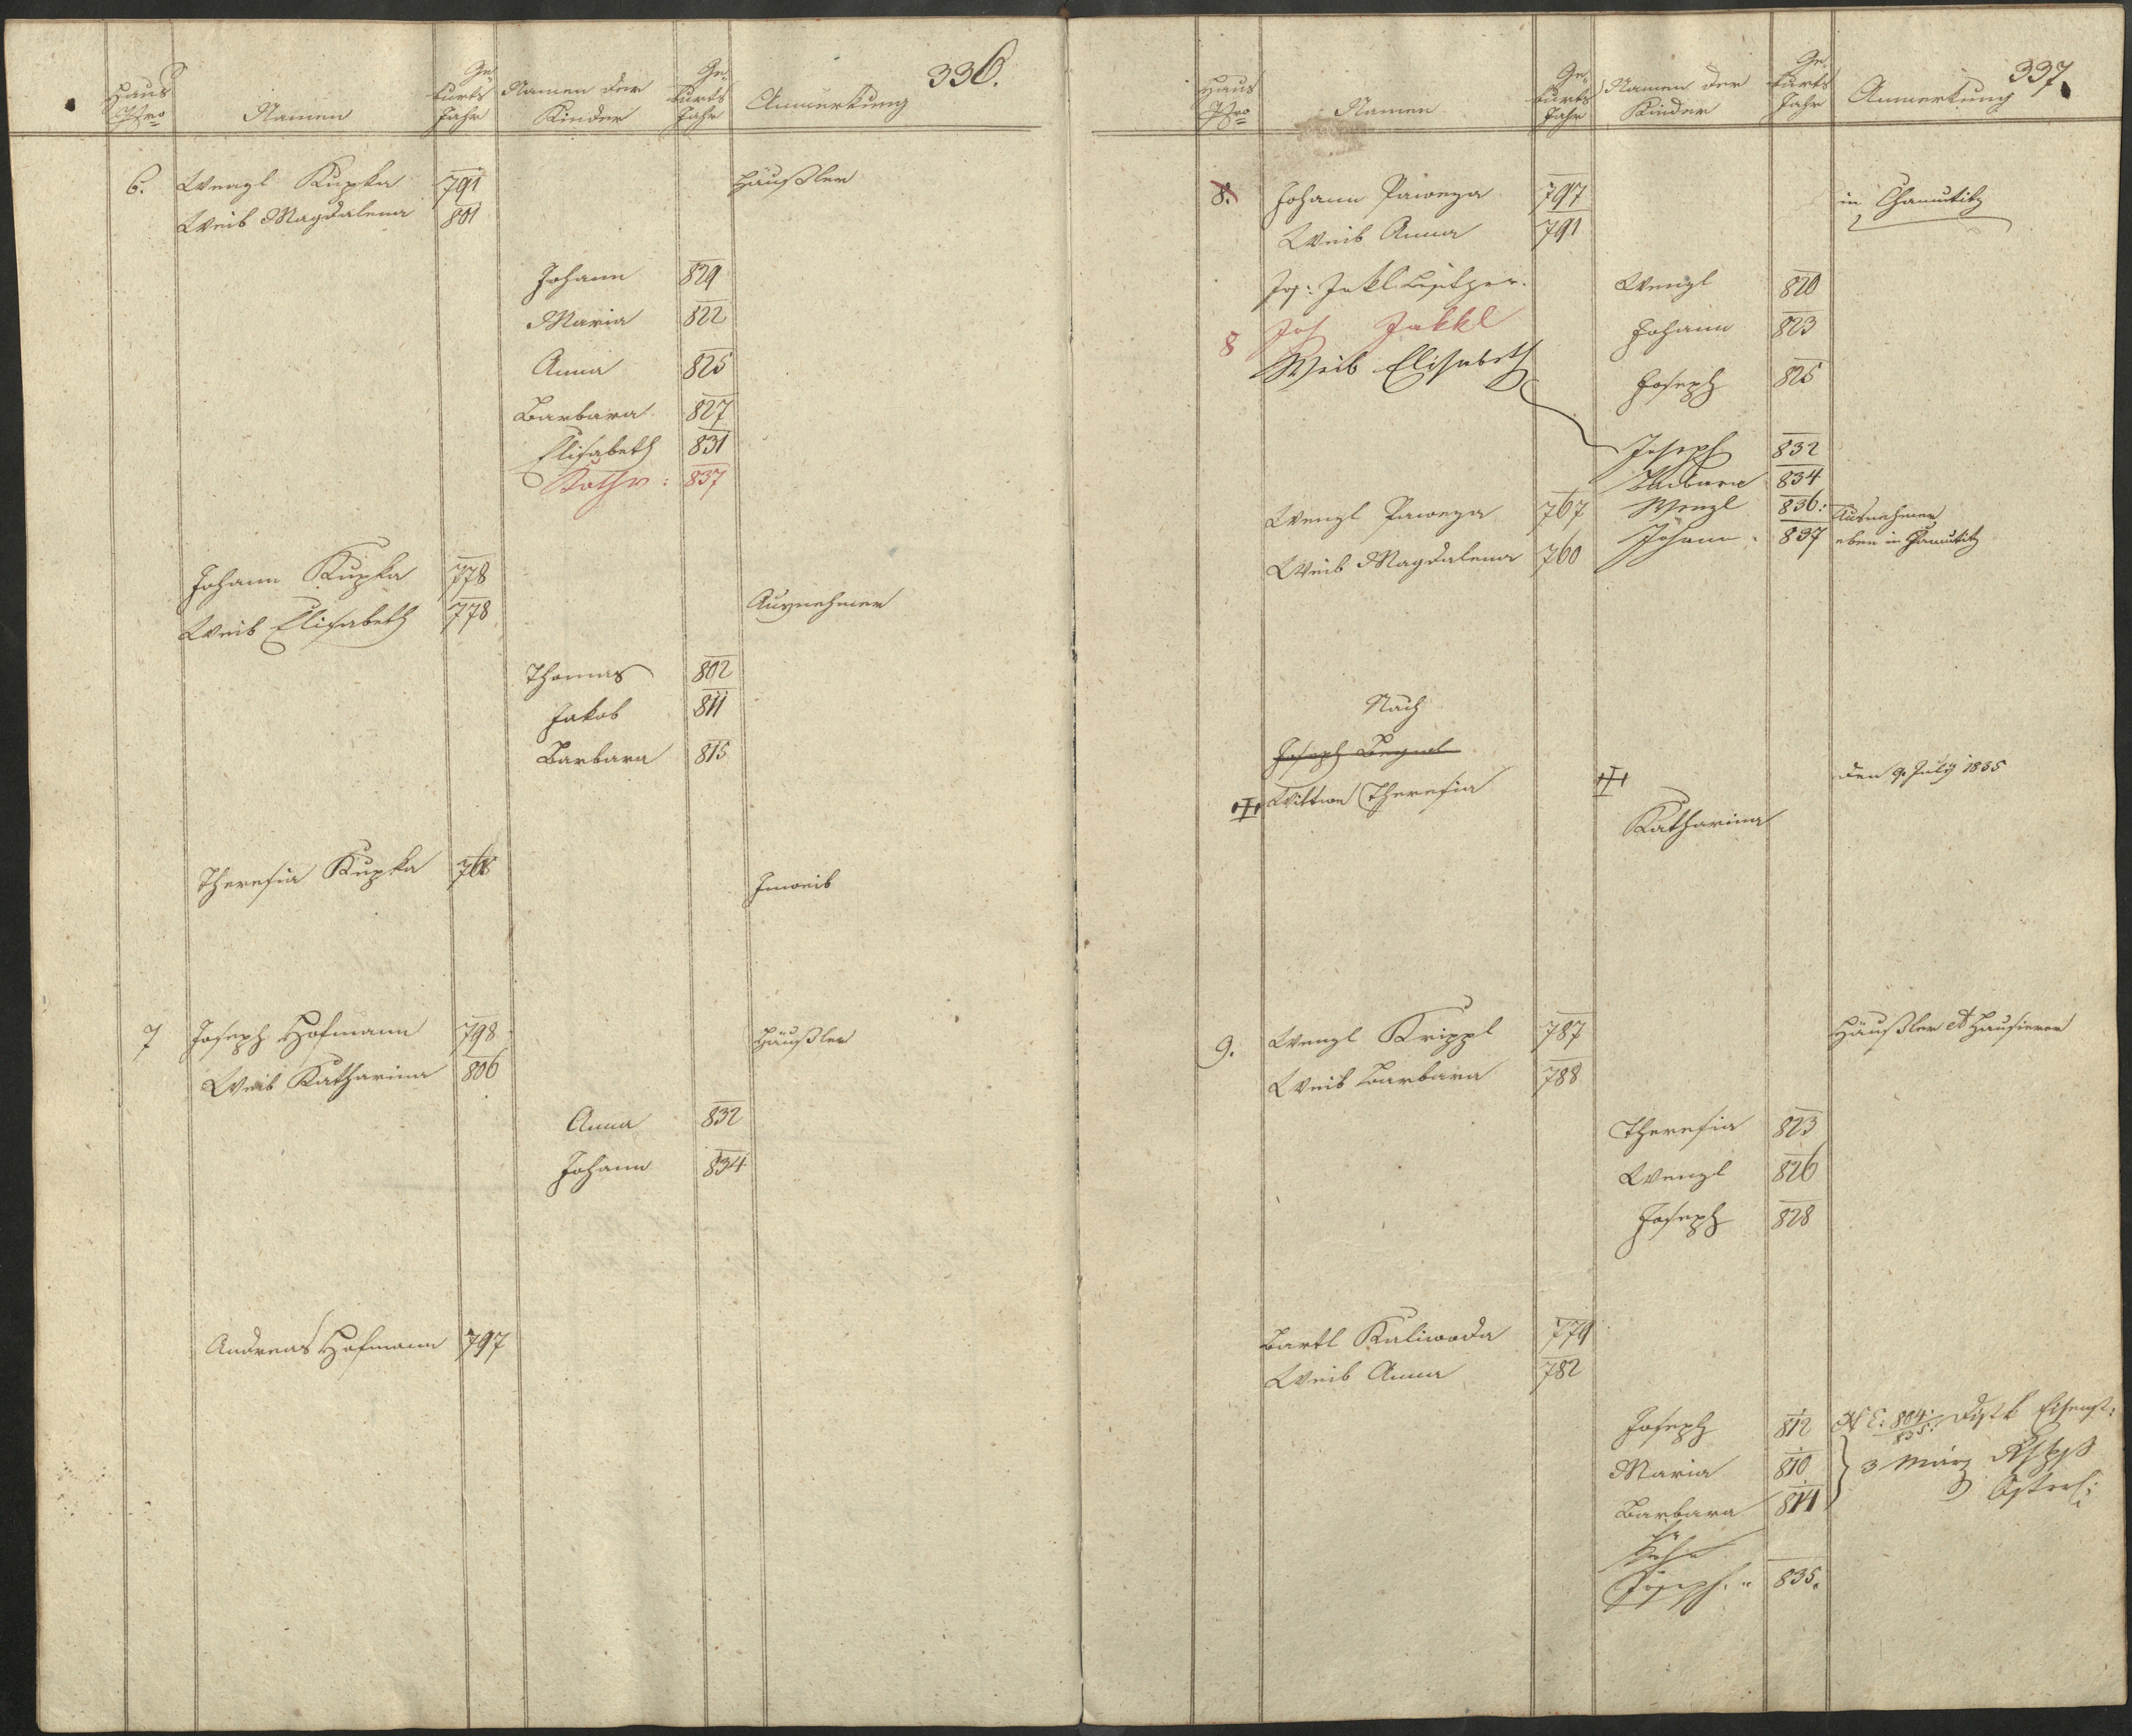 336.
Haus Nro Namen Geburts Jahr Namen der Kinder Geburts Jahr Anmerkung
6. Wenzl Kupka 791 Häußler
Weib Magdalena 801
Johann 829
Maria 822
Anna 825
Barbara 827
Elisabeth 831
Kathr: 837
Johann Kupka 778
Weib Elisabeth 778 Ausnehmer
Thomas 802
Jakob 811
Barbara 815
Theresia Kupka Inweib
7 Joseph Hofmann 798 Häußler
Weib Katharina 806
Anna 832
Johann 834
Andreas Hofmann 797
337.
Haus Nro Namen Geburts Jahr Namen der Kinder Geburts Jahr Anmerkung
8. Johann Pawega 797 in Chamutitz
Weib Anna 791
Jos: Jakl Besitzer. Wenzl 820
8 Jos Jakkl Johann 823
Weib Elisabeth
Joseph 825
Joseph 832
Barbara 834
Wenzl Pawega 767 Wenzl 836: Ausnehmer
Weib Magdalena 760 Johann 837 eben in Chamutitz
Nach
Joseph
Wittwe Theresia den 9. July 1835
Katharina
9. Wenzl Krippl 787 Häußler et Hausierer
Weib Barbara 788
Theresia 823
Wenzl 826
Joseph 828
Bartl Kaliwoda 779
Weib Anna 782
Joseph 812 N E: 804/835: Distk Eisenst:
Maria 810 3 März
Barbara 814
Sohn
Joseph. " 835.